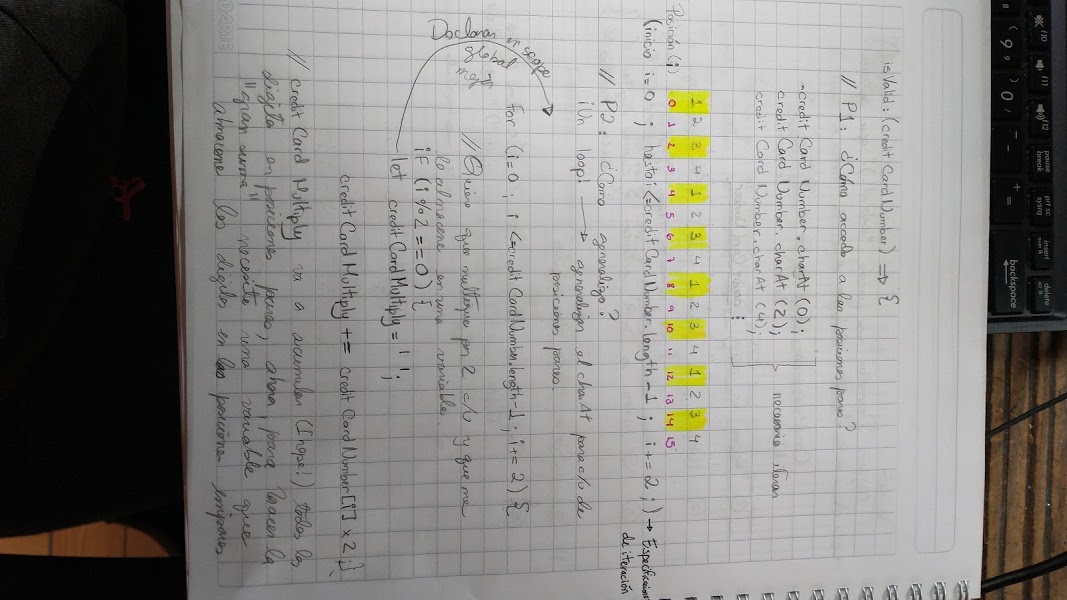 F10 F11 F12 pause break prt sc sysrq insert delete
8 ( 9 9 ) 0 / - - + = backspace
isValid: (credit Card Number) => {
// P1: ¿Cómo accedo a las posiciones pares?
-credit Card Number.charAt (0);
credit Card Number.charAt (2);
credit Card Number.charAt (4);
⋮
necesario iterar
1 2 3 4 1 2 3 4 1 2 3 4 1 2 3 4
Posición (i) 0 1 2 3 4 5 6 7 8 9 10 11 12 13 14 15
(inicio i=0 ; hasta i<=credit Card Number.length-1 ; i+=2;) → Especificaciones
de iteración
// P2: ¿Como generalizo?
¡Un loop! → generalizar el charAt para c/u de
posiciones pares.
Declarar en scope
global
mejor
for (i=0 ; i <=credit Card Number.length-1 ; i+=2) {
// Quiero que multiplique por 2 c/u y que me
lo almacene en una variable
if (i%2==0) {
let credit Card Multiply = ' ';
credit Card Multiply += credit Card Number[i] x 2;}
// credit Card Multiply va a acumular (I hope!) todos los
digitos en posiciones pares, ahora, para hacer la
"gran suma" necesito una variable que
almacene los digitos en las posiciones impares